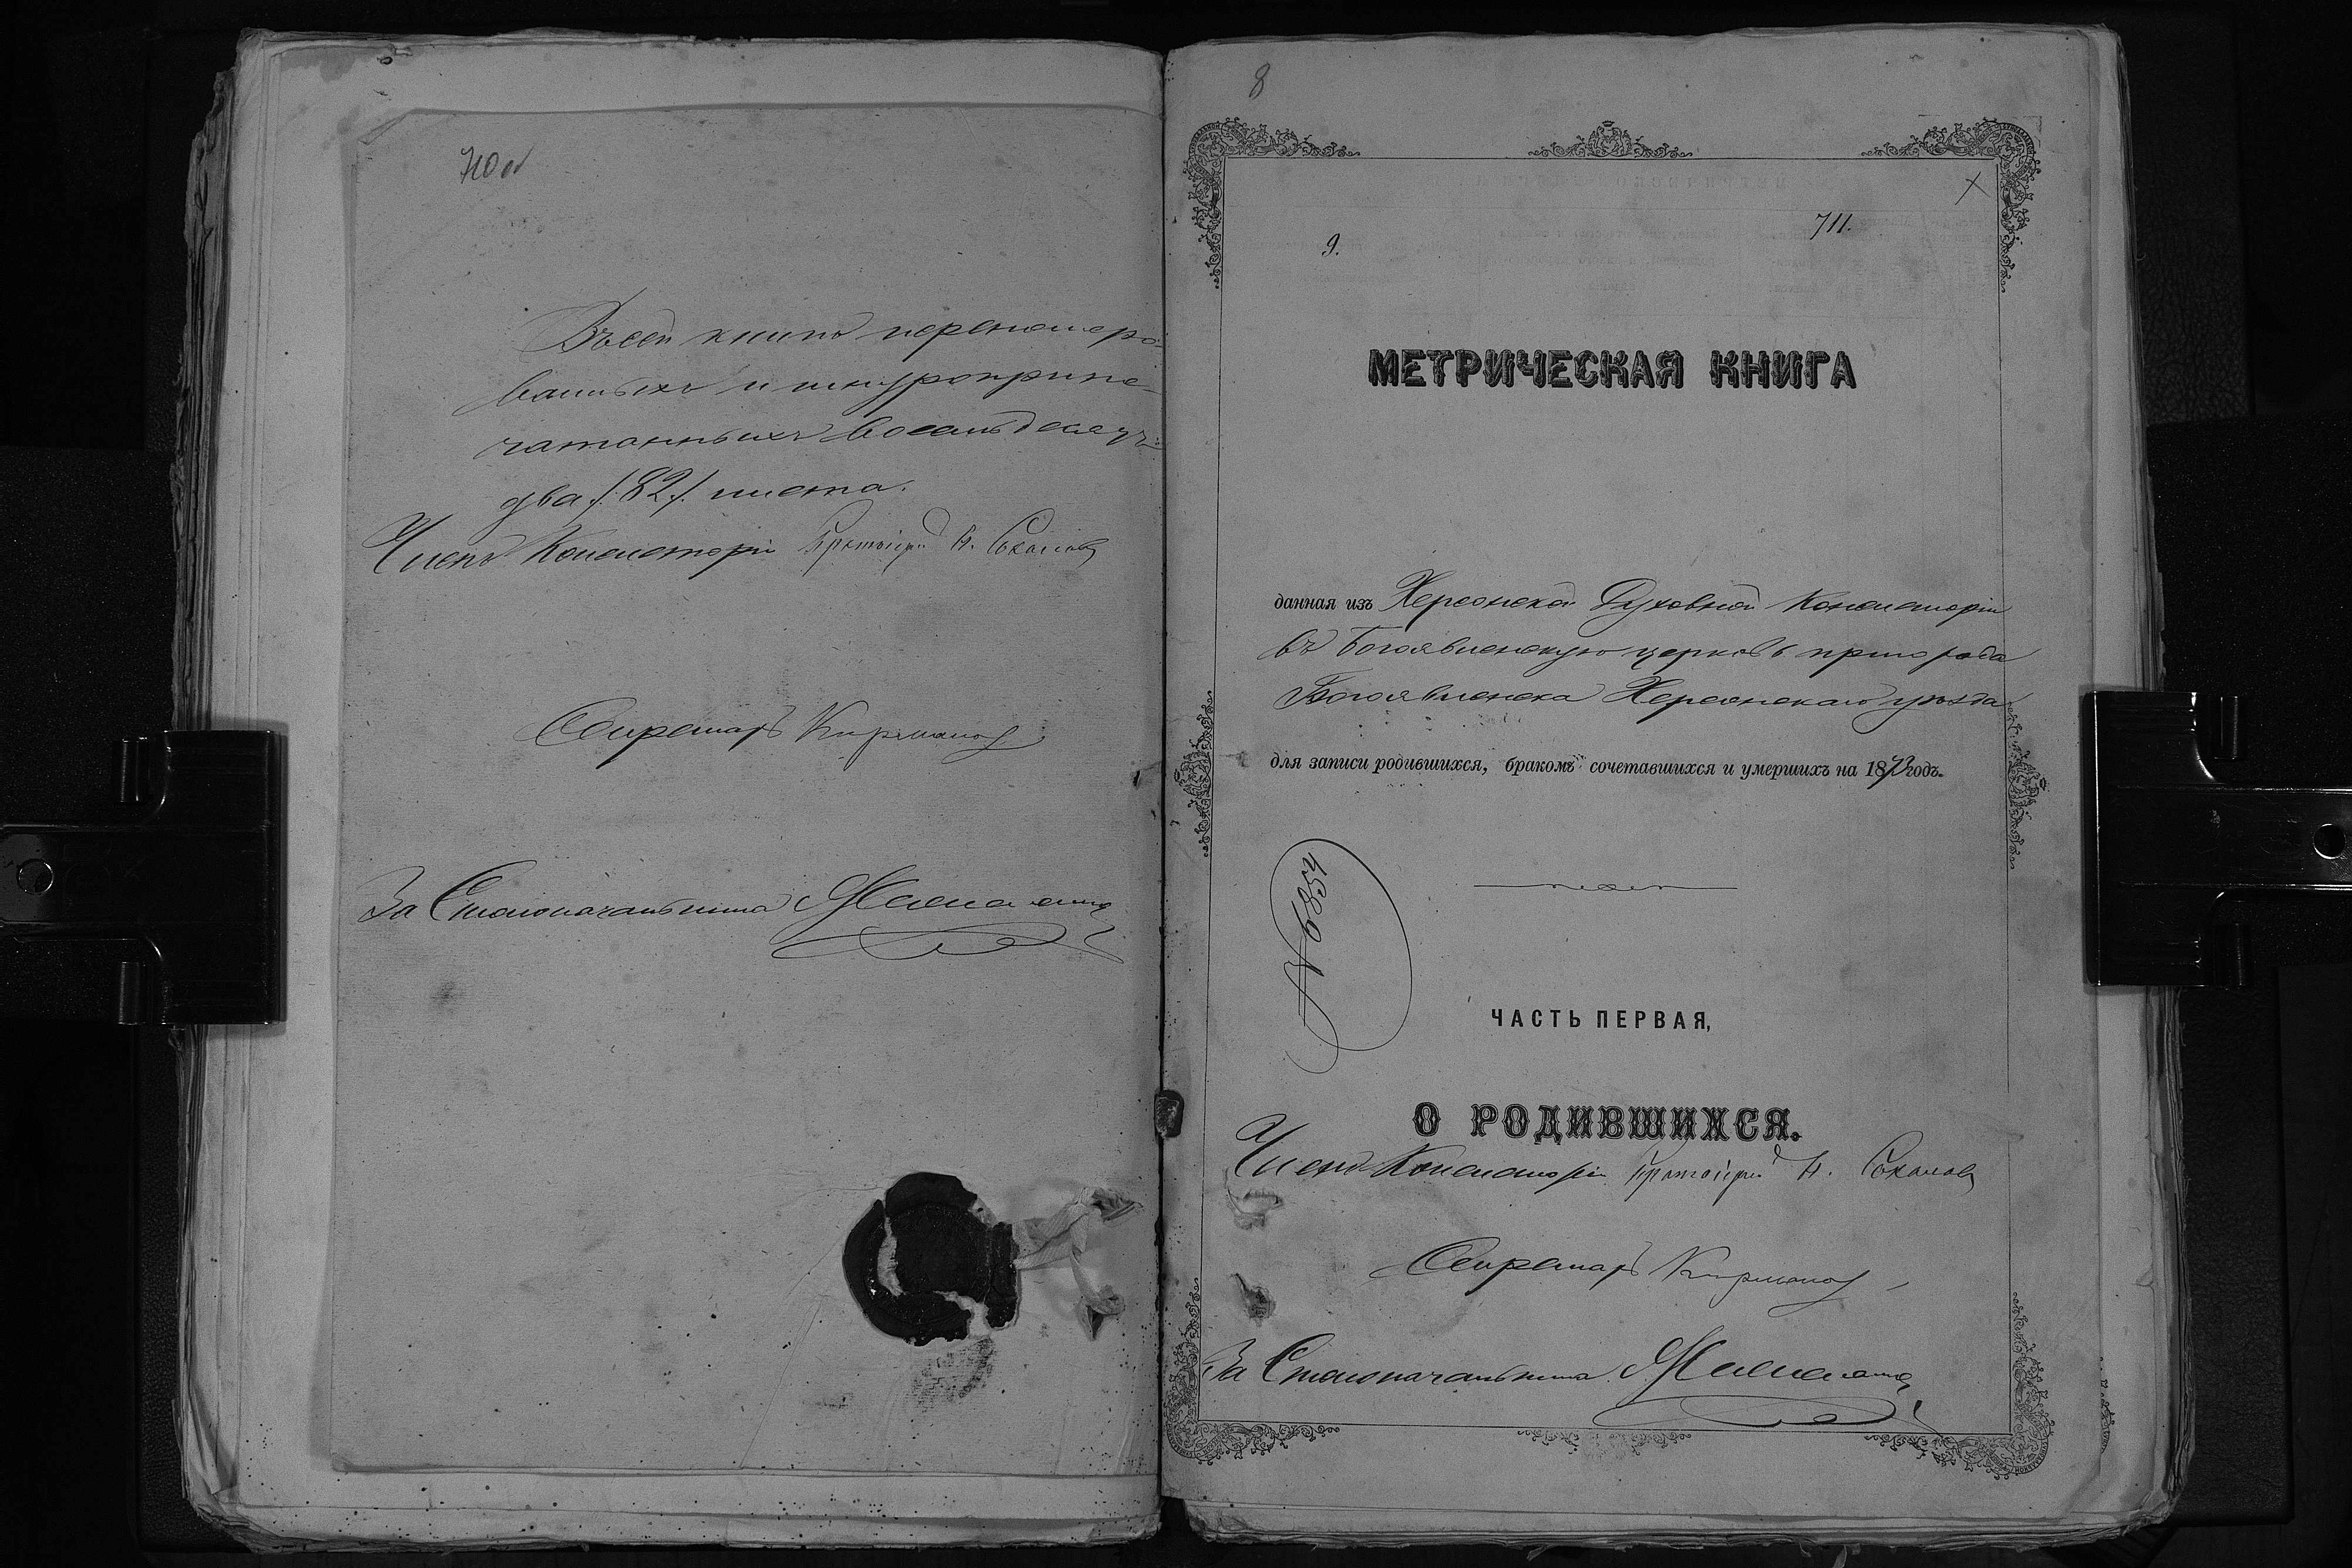 710 об
Въ сей книгѣ перенумеро-
ванныхъ и шнуроприпе-
чатанныхъ восемьдесятъ
два /:82:/ листа.
Членъ Консисторіи Протоіерей Н. Соколовъ
Секретарь
За Столоначальника
8
9.
711.
МЕТРИЧЕСКАЯ КНИГА
данная изъ Херсонской Духовной Консисторіи
въ Богоявленскую церковь пригорода
Богоявленска Херсонскаго уѣзда
для записи родившихся, бракомъ сочетавшихся и умершихъ на 1873 годъ.
№ 9834
ЧАСТЬ ПЕРВАЯ,
О РОДИВШИХСЯ.
Членъ Консисторіи Протоіерей Н. Соколовъ
Секретарь
За Столоначальника